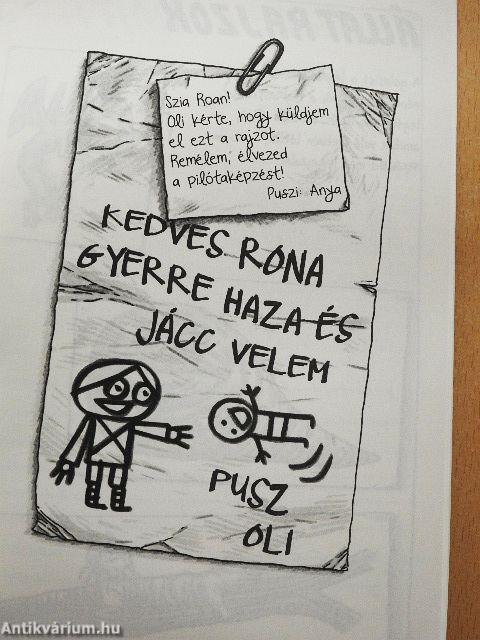 Szia Roan!
Oli kérte, hogy küldjem
el ezt a rajzot.
Remélem, élvezed
a pilótaképzést!
Puszi: Anya
KEDVES RONA
GYERRE HAZA ÉS
JÁCC VELEM
PUSZ
OLI
Antikvárium.hu